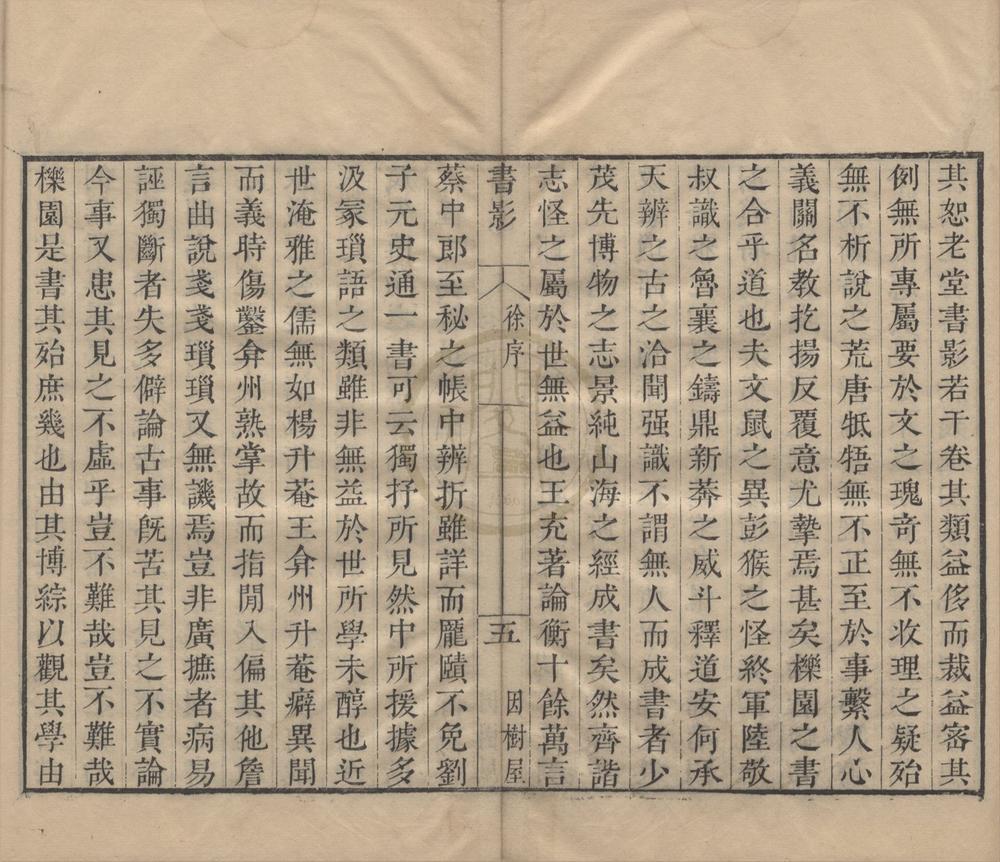 其恕老堂書影若干卷其類益侈而裁益密其
例無所專屬要於文之瑰奇無不收理之疑殆
無不析說之荒唐牴牾無不正至於事繫人心
義關名教扢揚反覆意尤摯焉甚矣櫟園之書
之合乎道也夫文鼠之異彭猴之怪終軍陸敬
叔識之魯襄之鑄鼎新莽之威斗釋道安何承
天辨之古之洽聞强識不謂無人而成書者少
茂先博物之志景純山海之經成書矣然齊諧
志怪之屬於世無益也王充著論衡十餘萬言
書影 徐序 五 因樹屋
蔡中郎至秘之帳中辨折雖詳而龐賾不免劉
子元史通一書可云獨抒所見然中所援據多
汲冢瑣語之類雖非無益於世所學未醇也近
世淹雅之儒無如楊升菴王弇州升菴癖異聞
而義時傷鑿弇州熟掌故而指閒入偏其他詹
言曲說戔戔瑣瑣又無譏焉豈非廣摭者病易
誣獨斷者失多僻論古事旣苦其見之不實論
今事又患其見之不虛乎豈不難哉豈不難哉
櫟園是書其殆庶幾也由其博綜以觀其學由